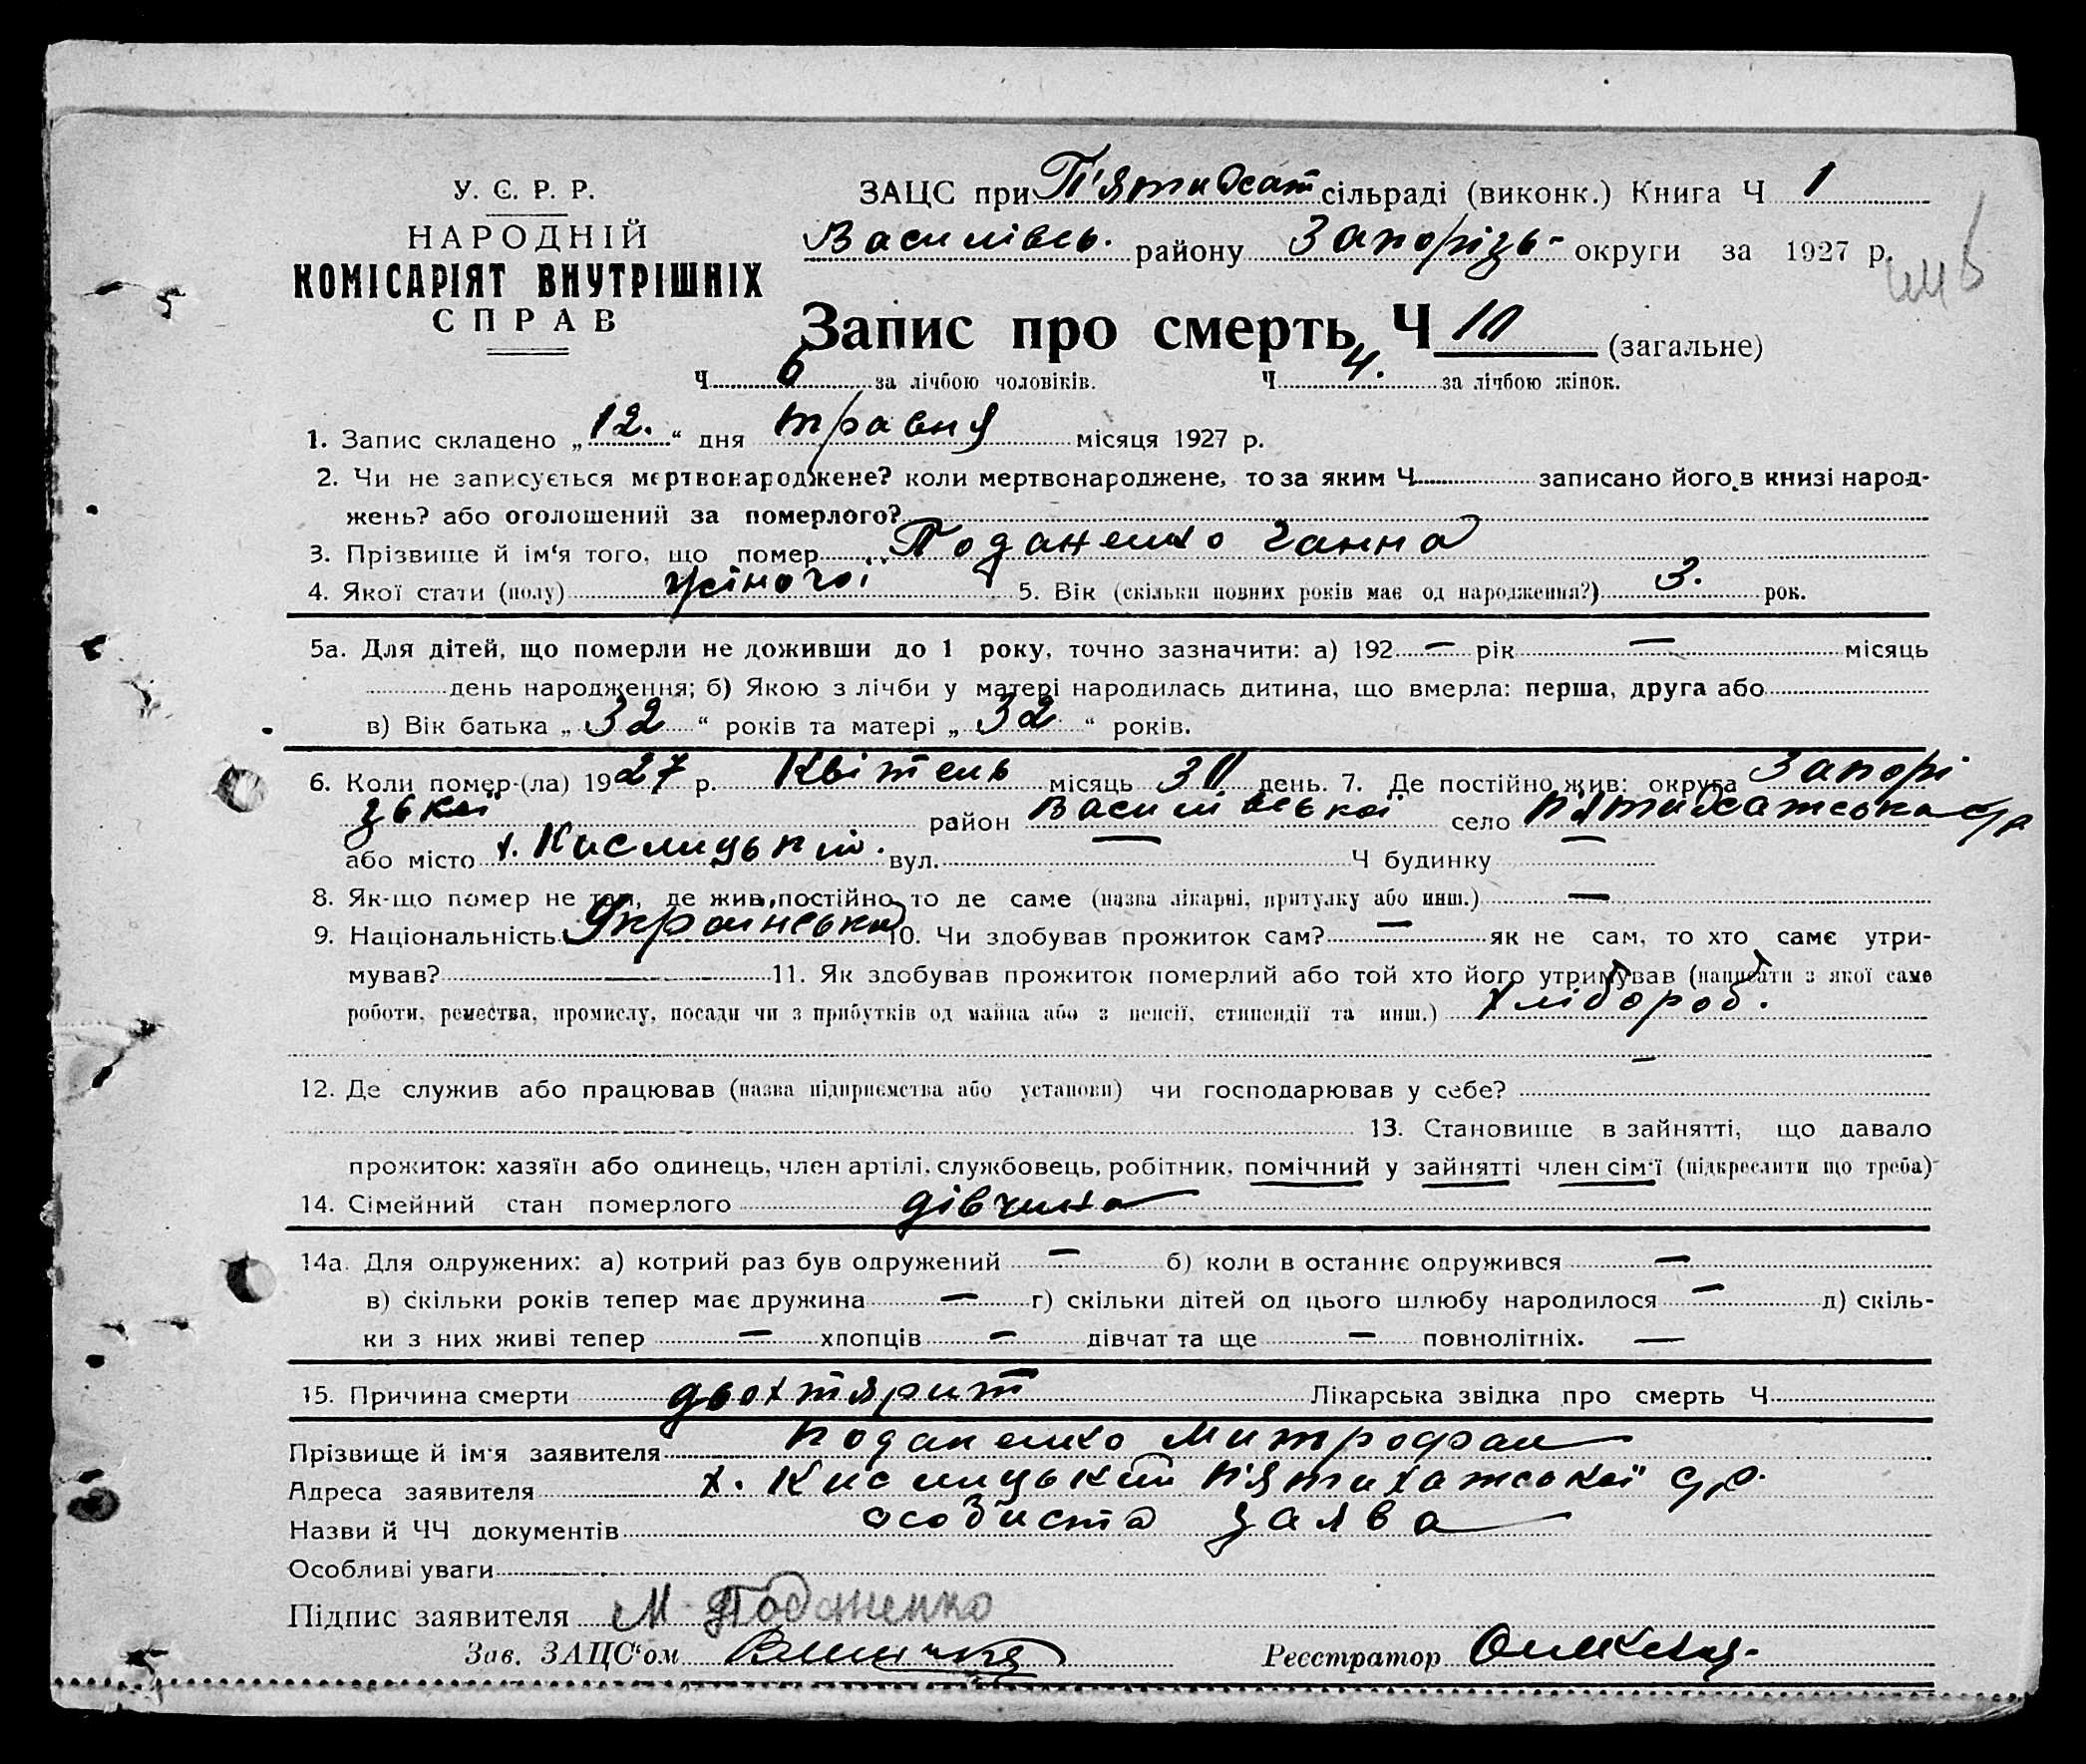 У. Є. Р. Р.
НАРОДНІЙ
КОМІСАРІЯТ ВНУТРІШНІХ
СПРАВ
ЗАЦС при П'ятихат сільраді (виконк.) Книга Ч 1
Василівсь. району Запорізь- округи за 1927 р.
Запис про смерть Ч 10 (загальне)
Ч 6 за лічбою чоловіків. Ч 4. за лічбою жінок.
1. Запис складено „12.“ дня травня місяця 1927 р.
2. Чи не записується мертвонароджене? коли мертвонароджене, то за яким Ч записано його в книзі народ-
жень? або оголошений за померлого?
3. Прізвище й ім‘я того, що помер Поданенко Ганна
4. Якої стати (полу) жіночої 5. Вік (скільки повних років має од народження?) 3. рок.
5а. Для дітей, що померли не доживши до 1 року, точно зазначити: а) 192 — рік — місяць
день народження; б) Якою з лічби у матері народилась дитина, що вмерла: перша, друга або
в) Вік батька „32“ років та матері „32“ років.
6. Коли помер-(ла) 1927 р. Квітень місяць 30 день. 7. Де постійно жив: округа Запорі
зької район Василівської село П'ятихатська с/р
або місто х. Кислицький. вул. — Ч будинку —
8. Як-що помер не там, де жив постійно то де саме (назва лікарні, притулку або инш.) —
9. Національність Українська 10. Чи здобував прожиток сам? — як не сам, то хто саме утри-
мував? — 11. Як здобував прожиток померлий або той хто його утримував (написати з якої саме
роботи, ремества, промислу, посади чи з прибутків од майна або з пенсії, стипендії та инш.) хлібороб.
—
12. Де служив або працював (назва підприємства або установи) чи господарював у себе?
13. Становище в зайнятті, що давало
прожиток: хазяїн або одинець, член артілі, службовець, робітник, помічний у зайнятті член сім‘ї (підкреслити що треба)
14. Сімейний стан померлого дівчина
14а. Для одружених: а) котрий раз був одружений — б) коли в останнє одружився —
в) скільки років тепер має дружина — г) скільки дітей од цього шлюбу народилося — д) скіль-
ки з них живі тепер — хлопців — дівчат та ще — повнолітніх. —
15. Причина смерти двохтярит Лікарська звідка про смерть Ч
Прізвище й ім‘я заявителя Поданенко Митрофан
Адреса заявителя х. Кислицький П'ятихатської с/р.
Назви й ЧЧ документів особиста заява
Особливі уваги
Підпис заявителя М Поданенко
Зав. ЗАЦС‘ом
Реєстратор